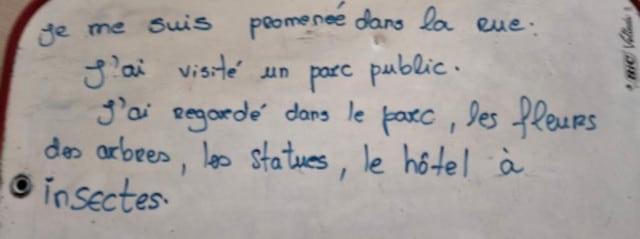 je me suis promeneé dans la rue.
J'ai visité un parc public.
J'ai regardé dans le parc, les fleurs
des arbres, les statues, le hôtel à
insectes.
BIC Velleda